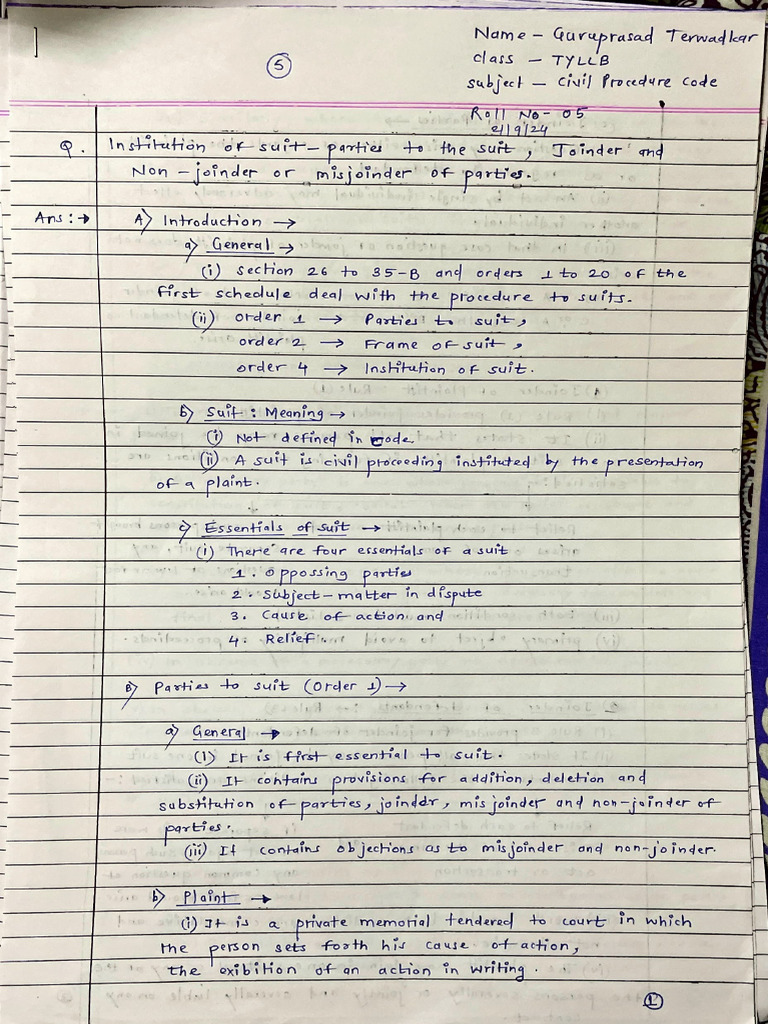 Name - Guruprasad Terwadkar
class - TYLLB
5
subject - Civil Procedure Code
Roll No- 05
2/9/24
Q. Institution of suit - parties to the suit, Joinder and
Non-joinder or misjoinder of parties.
Ans: → A) Introduction →
a) General →
(i) section 26 to 35-B and orders 1 to 20 of the
first schedule deal with the procedure to suits.
(ii) order 1 → Parties to suit,
order 2 → Frame of suit,
order 4 → Institution of suit.
b) Suit: Meaning →
(i) Not defined in code
(ii) A suit is civil proceeding instituted by the presentation
of a plaint.
c) Essentials of suit →
(i) There are four essentials of a suit
1. oppossing parties
2. subject-matter in dispute
3. Cause of action and
4. Relief.
B) Parties to suit (Order 1) →
a) General →
(i) It is first essential to suit.
(ii) It contains provisions for addition, deletion and
substitution of parties, joinddr, misjoinder and non-joinder of
parties.
(iii) It contains objections as to misjoinder and non-joinder.
b) Plaint →
(i) It is a private memorial tendered to court in which
the person sets forth his cause of action,
the exibition of an action in writing.
1